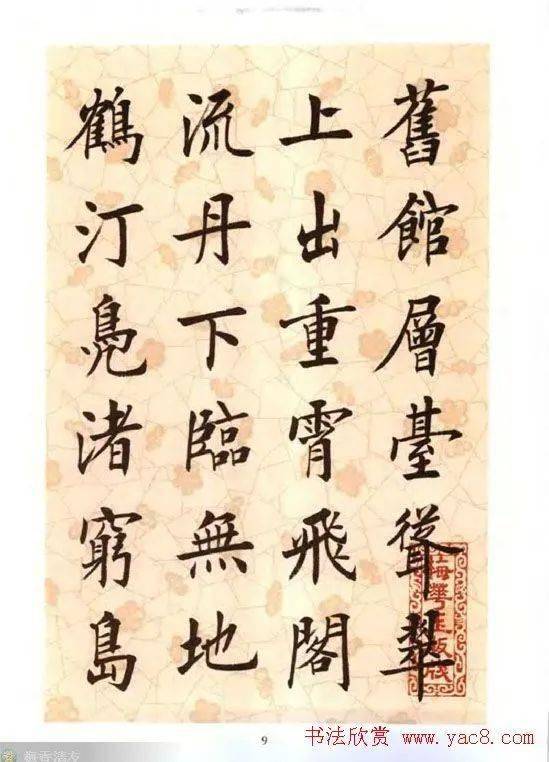 舊館層臺聳翠
上出重霄飛閣
流丹下臨無地
鶴汀鳧渚窮島
9
书法欣赏 www.yac8.com